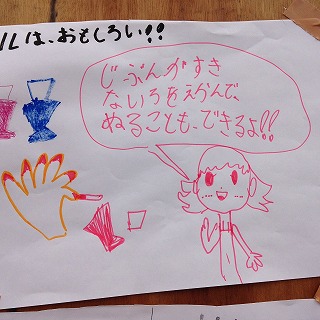 ルは、おもしろい!!
じぶんがすき
ないろをえらんで、
ぬることも、できるよ!!